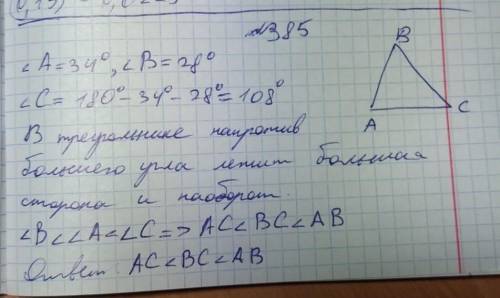 №385
∠A=34°, ∠B=28°
∠C= 180°-34°-28°=108°
В треугольнике напротив
большего угла лежит большая
сторона и наоборот.
∠B<∠A<∠C => AC<BC<AB
Ответ: AC<BC<AB
B
A
C